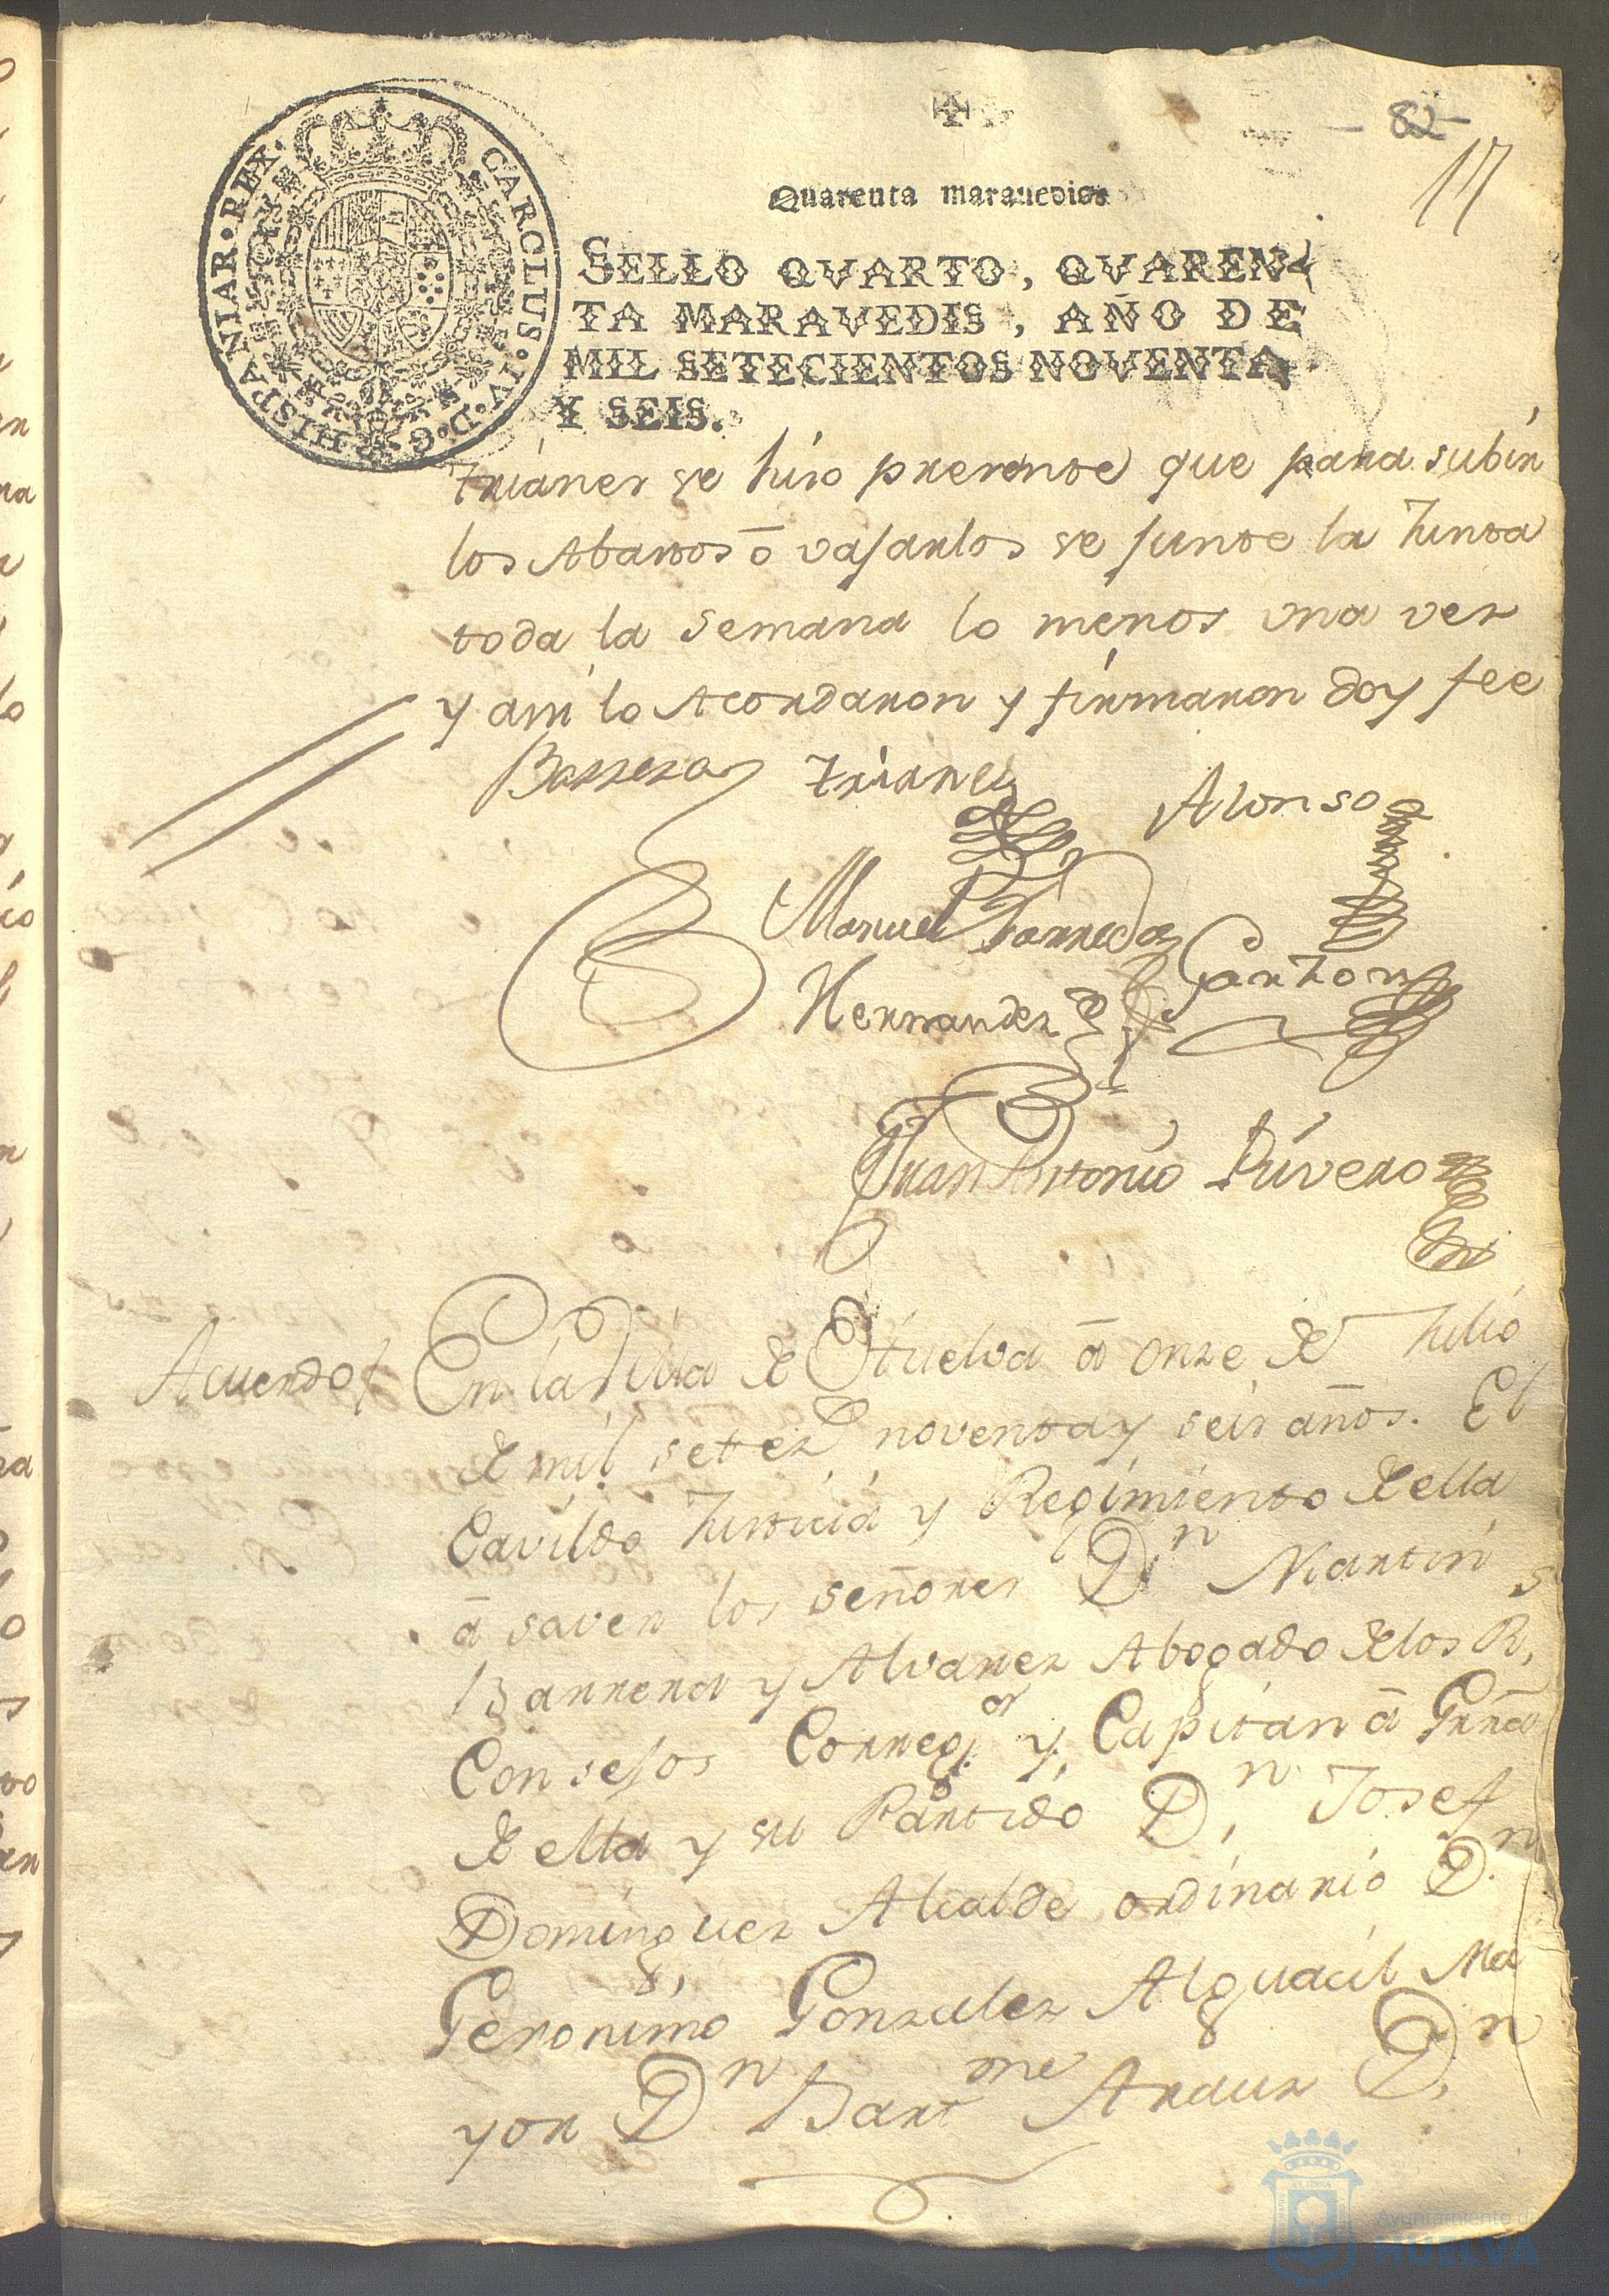 - 82 -
17
Quarenta marauedis
CAROLUS·IV·D·G·HISPANIAR·REX·
SELLO QVARTO, QVAREN-
TA MARAVEDIS, AÑO DE
MIL SETECIENTOS NOVENTA
Y SEIS.
Trianes se hizo presente que para subir
los Abastos ō vajarlos se junte la Junta
toda la semana lo menos una vez
y assi lo Acordaron y firmaron doy fee
Barrera Trianes Alonso
Manuel Barreda
Garzon
Hernandez
Juan Antonio Rivero
Acuerdo
En la Villa de Huelva ā onze de Julio
de mil setez noventa y seis años. El
Cavildo Justicia y Regimiento de ella
ā saver los señores Dn Martin
Barrera y Alvarez Abogado de los R.s
Consejos Corregor y Capitan ā Grra
de ella y su Partido Dn Josef
Dominguez Alcalde ordinario Dn
Geronimo Gonzalez Alguacil Ma
yor Dn Bartme Arauz Dn
Ayuntamiento de
HUELVA